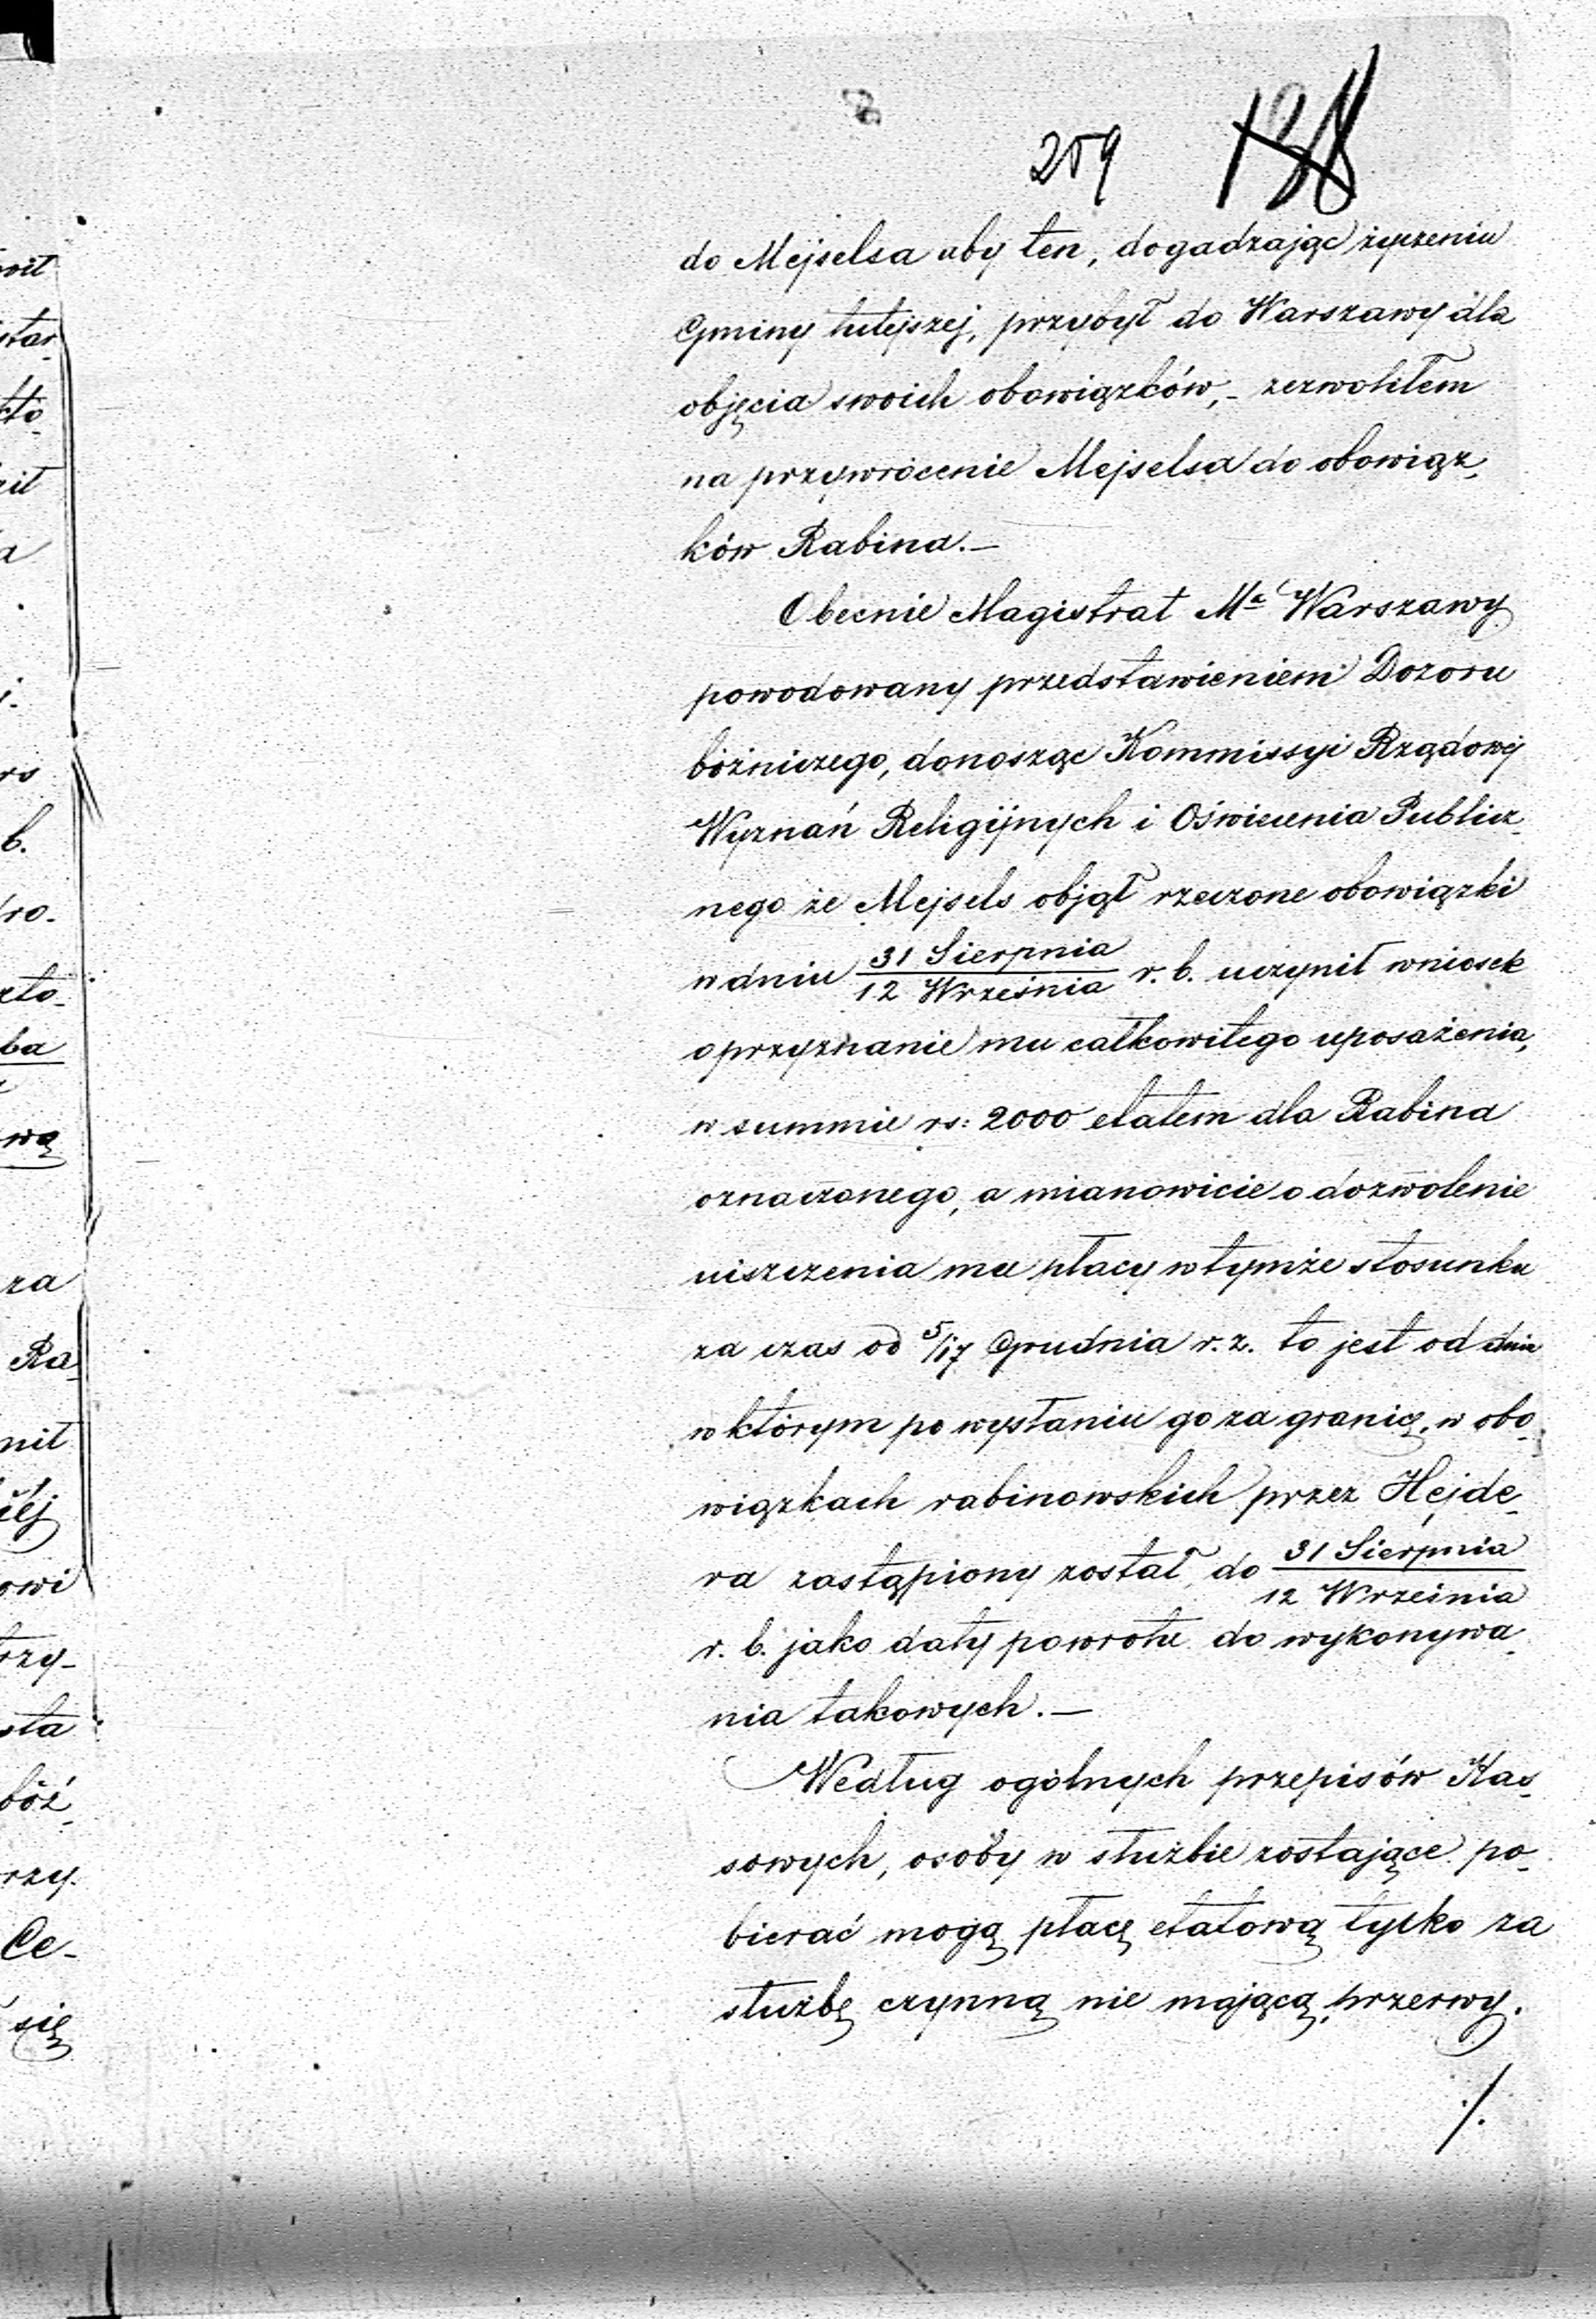 259 138
do Mejselsa aby ten, dogadzając życzeniu
Gminy tutejszej, przybył do Warszawy dla
objęcia swoich obowiązków,- zezwoliłem
na przywrócenie Mejselsa do obowiąz-
ków Rabina.—
Obecnie Magistrat Mta Warszawy
powodowany przedstawieniem Dozoru
bóżniczego, donosząc Kommissyi Rządowej
Wyznań Religijnych i Oświecenia Publicz-
nego że Mejsels objął rzeczone obowiązki
w dniu 31 Sierpnia/12 Września r. b. uczynił wniosek
o przyznanie mu całkowitego uposażenia,
w summie rs: 2000 etatem dla Rabina
oznaczonego, a mianowicie o dozwolenie
uiszczenia mu płacy w tymże stosunku
za czas od 5/17 Grudnia r. z. to jest od dnia
w którym po wysłaniu go za granicę, w obo-
wiązkach rabinowskich przez Hejde-
ra zastąpiony został, do 31 Sierpnia/12 Września
r. b. jako daty powrotu do wykonywa-
nia takowych.—
Według ogólnych przepisów Kas-
sowych, osoby w służbie zostające po-
bierać mogą płacę etatową tylko za
służbę czynną nie mającą przerwy.
./.